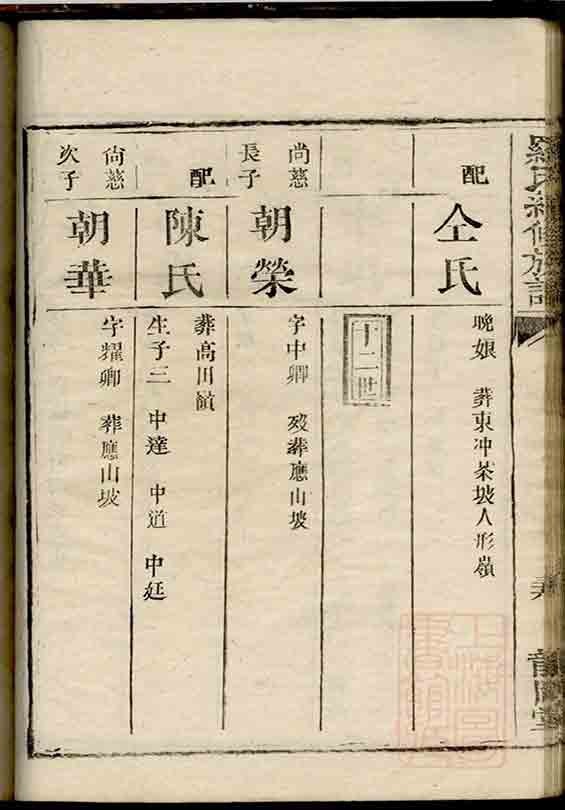 羅氏續修族譜
配
仝氏
晚娘 葬東冲茶坡人形嶺
十二世
尚慈
長子
朝榮
字中卿 歿葬應山坡
配
陳氏
葬高川嶺
生子三 中達 中道 中廷
尚慈
次子
朝華
字耀卿 葬應山坡